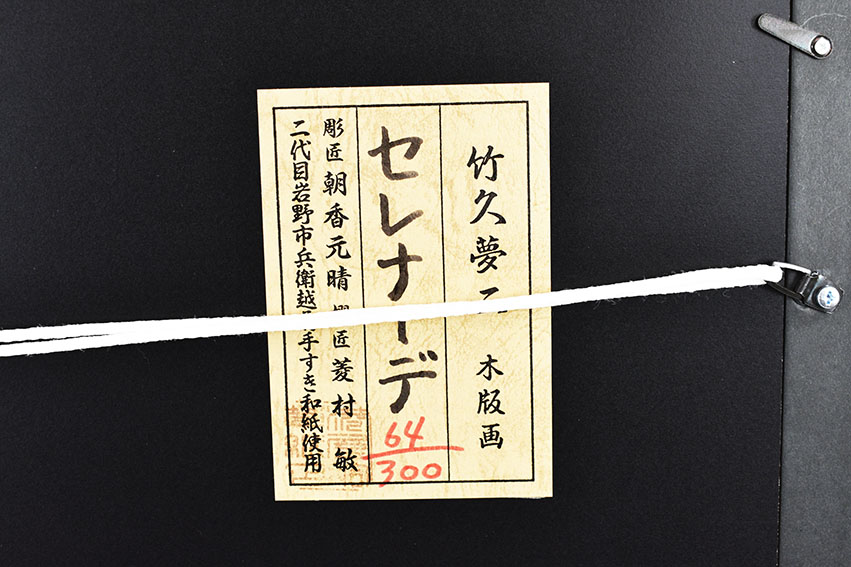 竹久夢二 木版画
セレナーデ
64/300
彫匠 朝香元晴 摺匠 菱村 敏
二代目岩野市兵衛越前手すき和紙使用